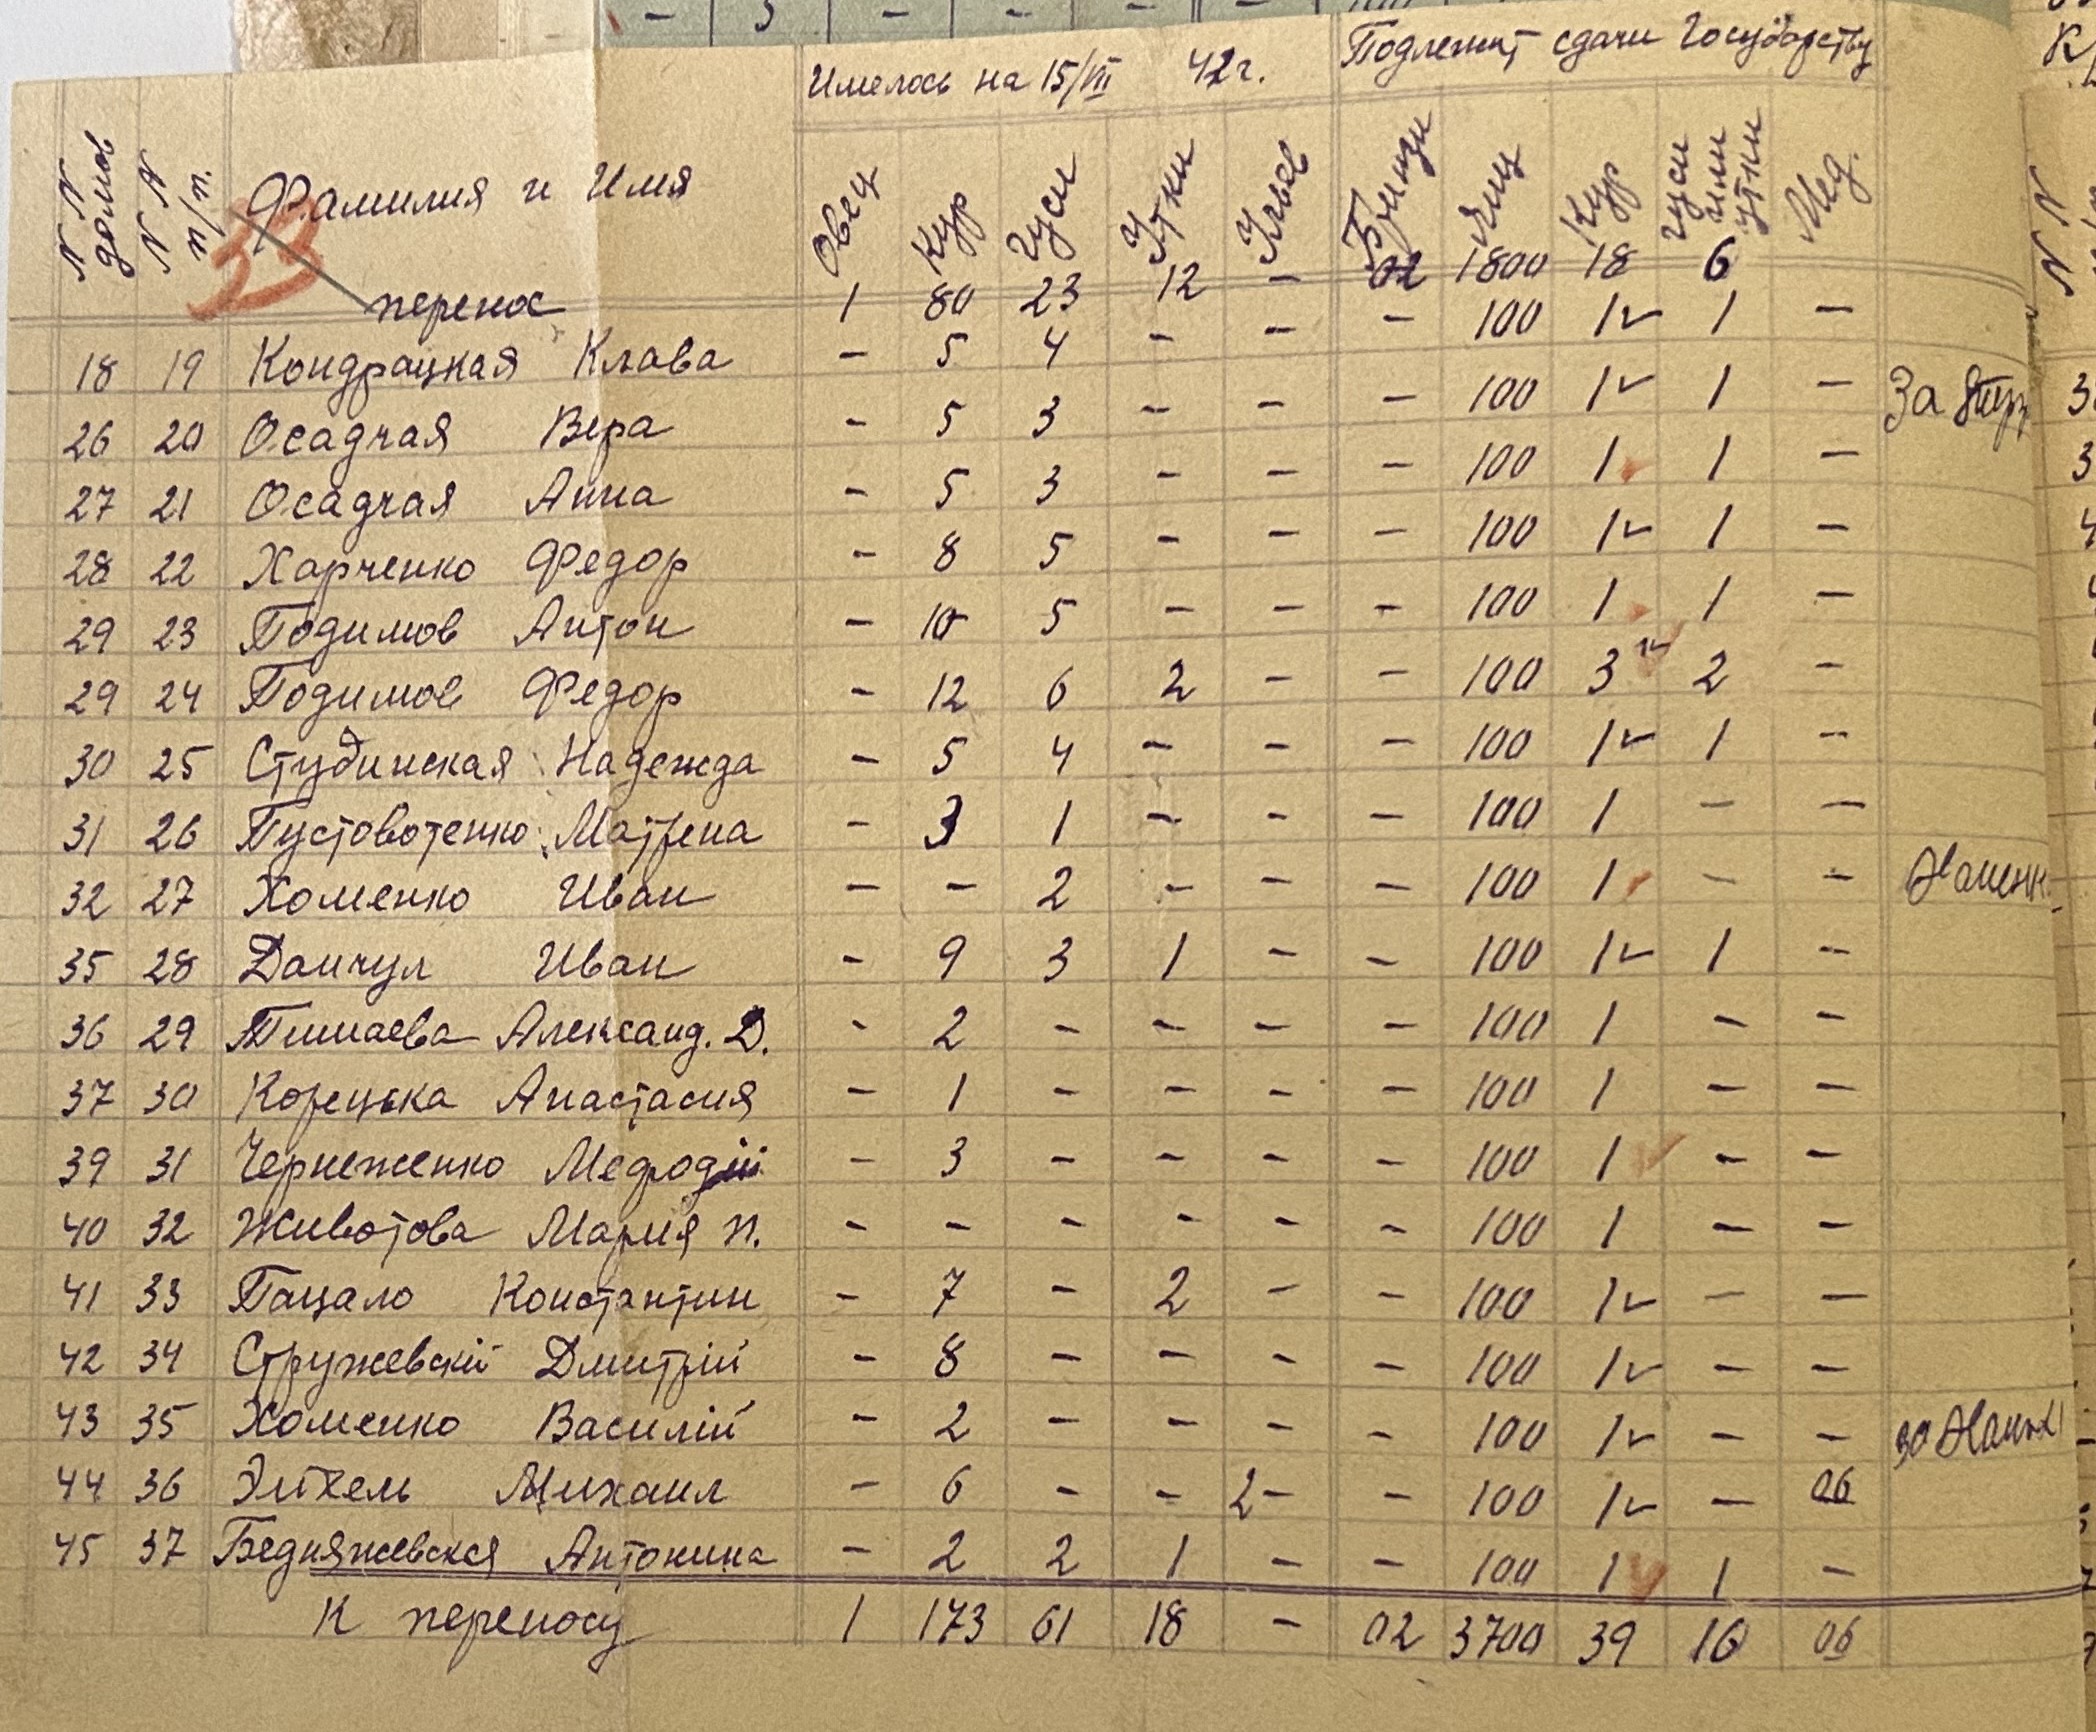 - 3 - - - -
Имелось на 15/VII 42г. Подлежит сдачи Государству
N N домов N N п/п. Фамилия и Имя Овец Кур Гуси Утки Ульев Брынзы Яиц Кур Гуси или утки Мед.
33
перенос 1 80 23 12 - 02 1800 18 6
18 19 Кондрацкая Клава - 5 4 - - - 100 1 1 -
26 20 Осадчая Вера - 5 3 - - - 100 1 1 - За
27 21 Осадчая Анна - 5 3 - - - 100 1 1 -
28 22 Харченко Федор - 8 5 - - - 100 1 1 -
29 23 Подимов Антон - 10 5 - - - 100 1 1 -
29 24 Подимов Федор - 12 6 2 - - 100 3 2 -
30 25 Студинская Надежда - 5 4 - - - 100 1 1 -
31 26 Пустовотенко Матрена - 3 1 - - - 100 1 - -
32 27 Хоменко Иван - - 2 - - - 100 1 - -
35 28 Данчул Иван - 9 3 1 - - 100 1 1 -
36 29 Тишаева Александ. Д. - 2 - - - - 100 1 - -
37 30 Корецька Анастасия - 1 - - - - 100 1 - -
39 31 Чернеженко Мефодій - 3 - - - - 100 1 - -
40 32 Животова Мария П. - - - - - - 100 1 - -
41 33 Пацало Константин - 7 - 2 - - 100 1 - -
42 34 Стружевскій Дмитрій - 8 - - - - 100 1 - -
43 35 Хоменко Василій - 2 - - - - 100 1 - - за
44 36 Эйхель Михаил - 6 - - 2- - 100 1 - 06
45 37 Бедняжевская Антонина - 2 2 1 - - 100 1 1 -
К переносу 1 173 61 18 - 02 3700 39 16 06